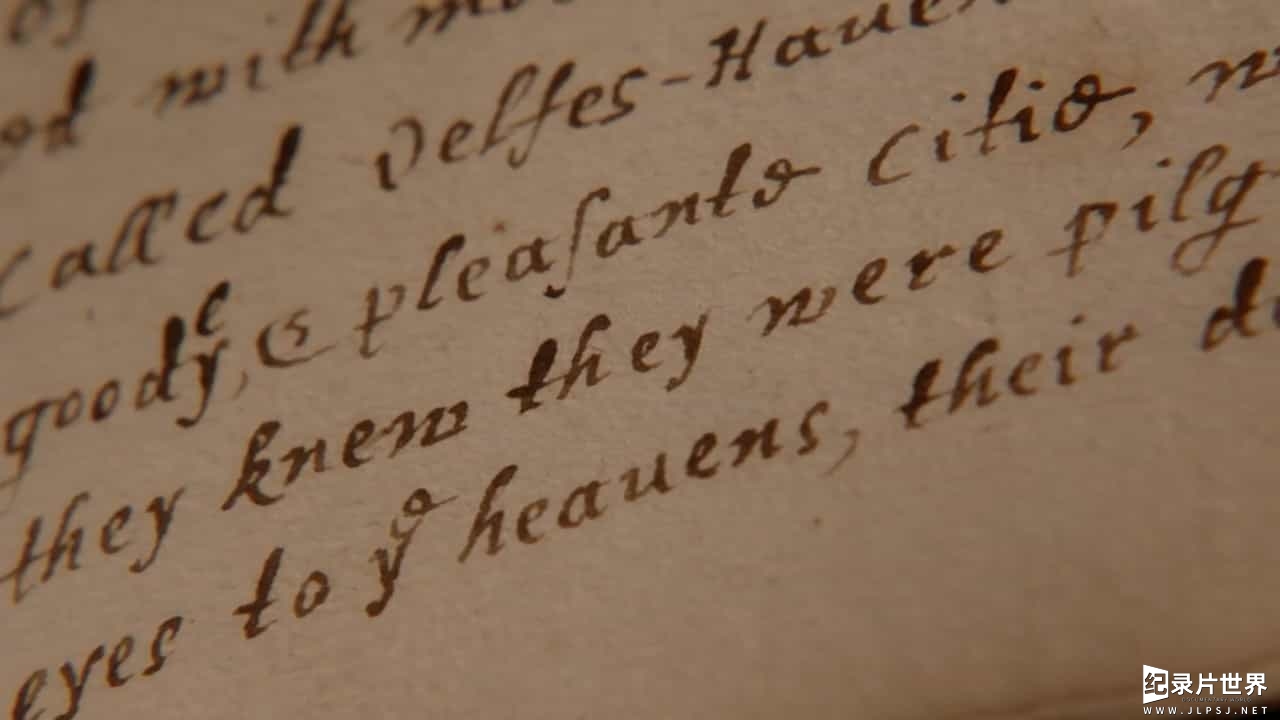 with
called Delfes-Hauen
goodly, & pleasante citie, w
they knew they were pilg
eyes to yᵉ heauens, their
纪录片世界
WWW.JLPSJ.NET